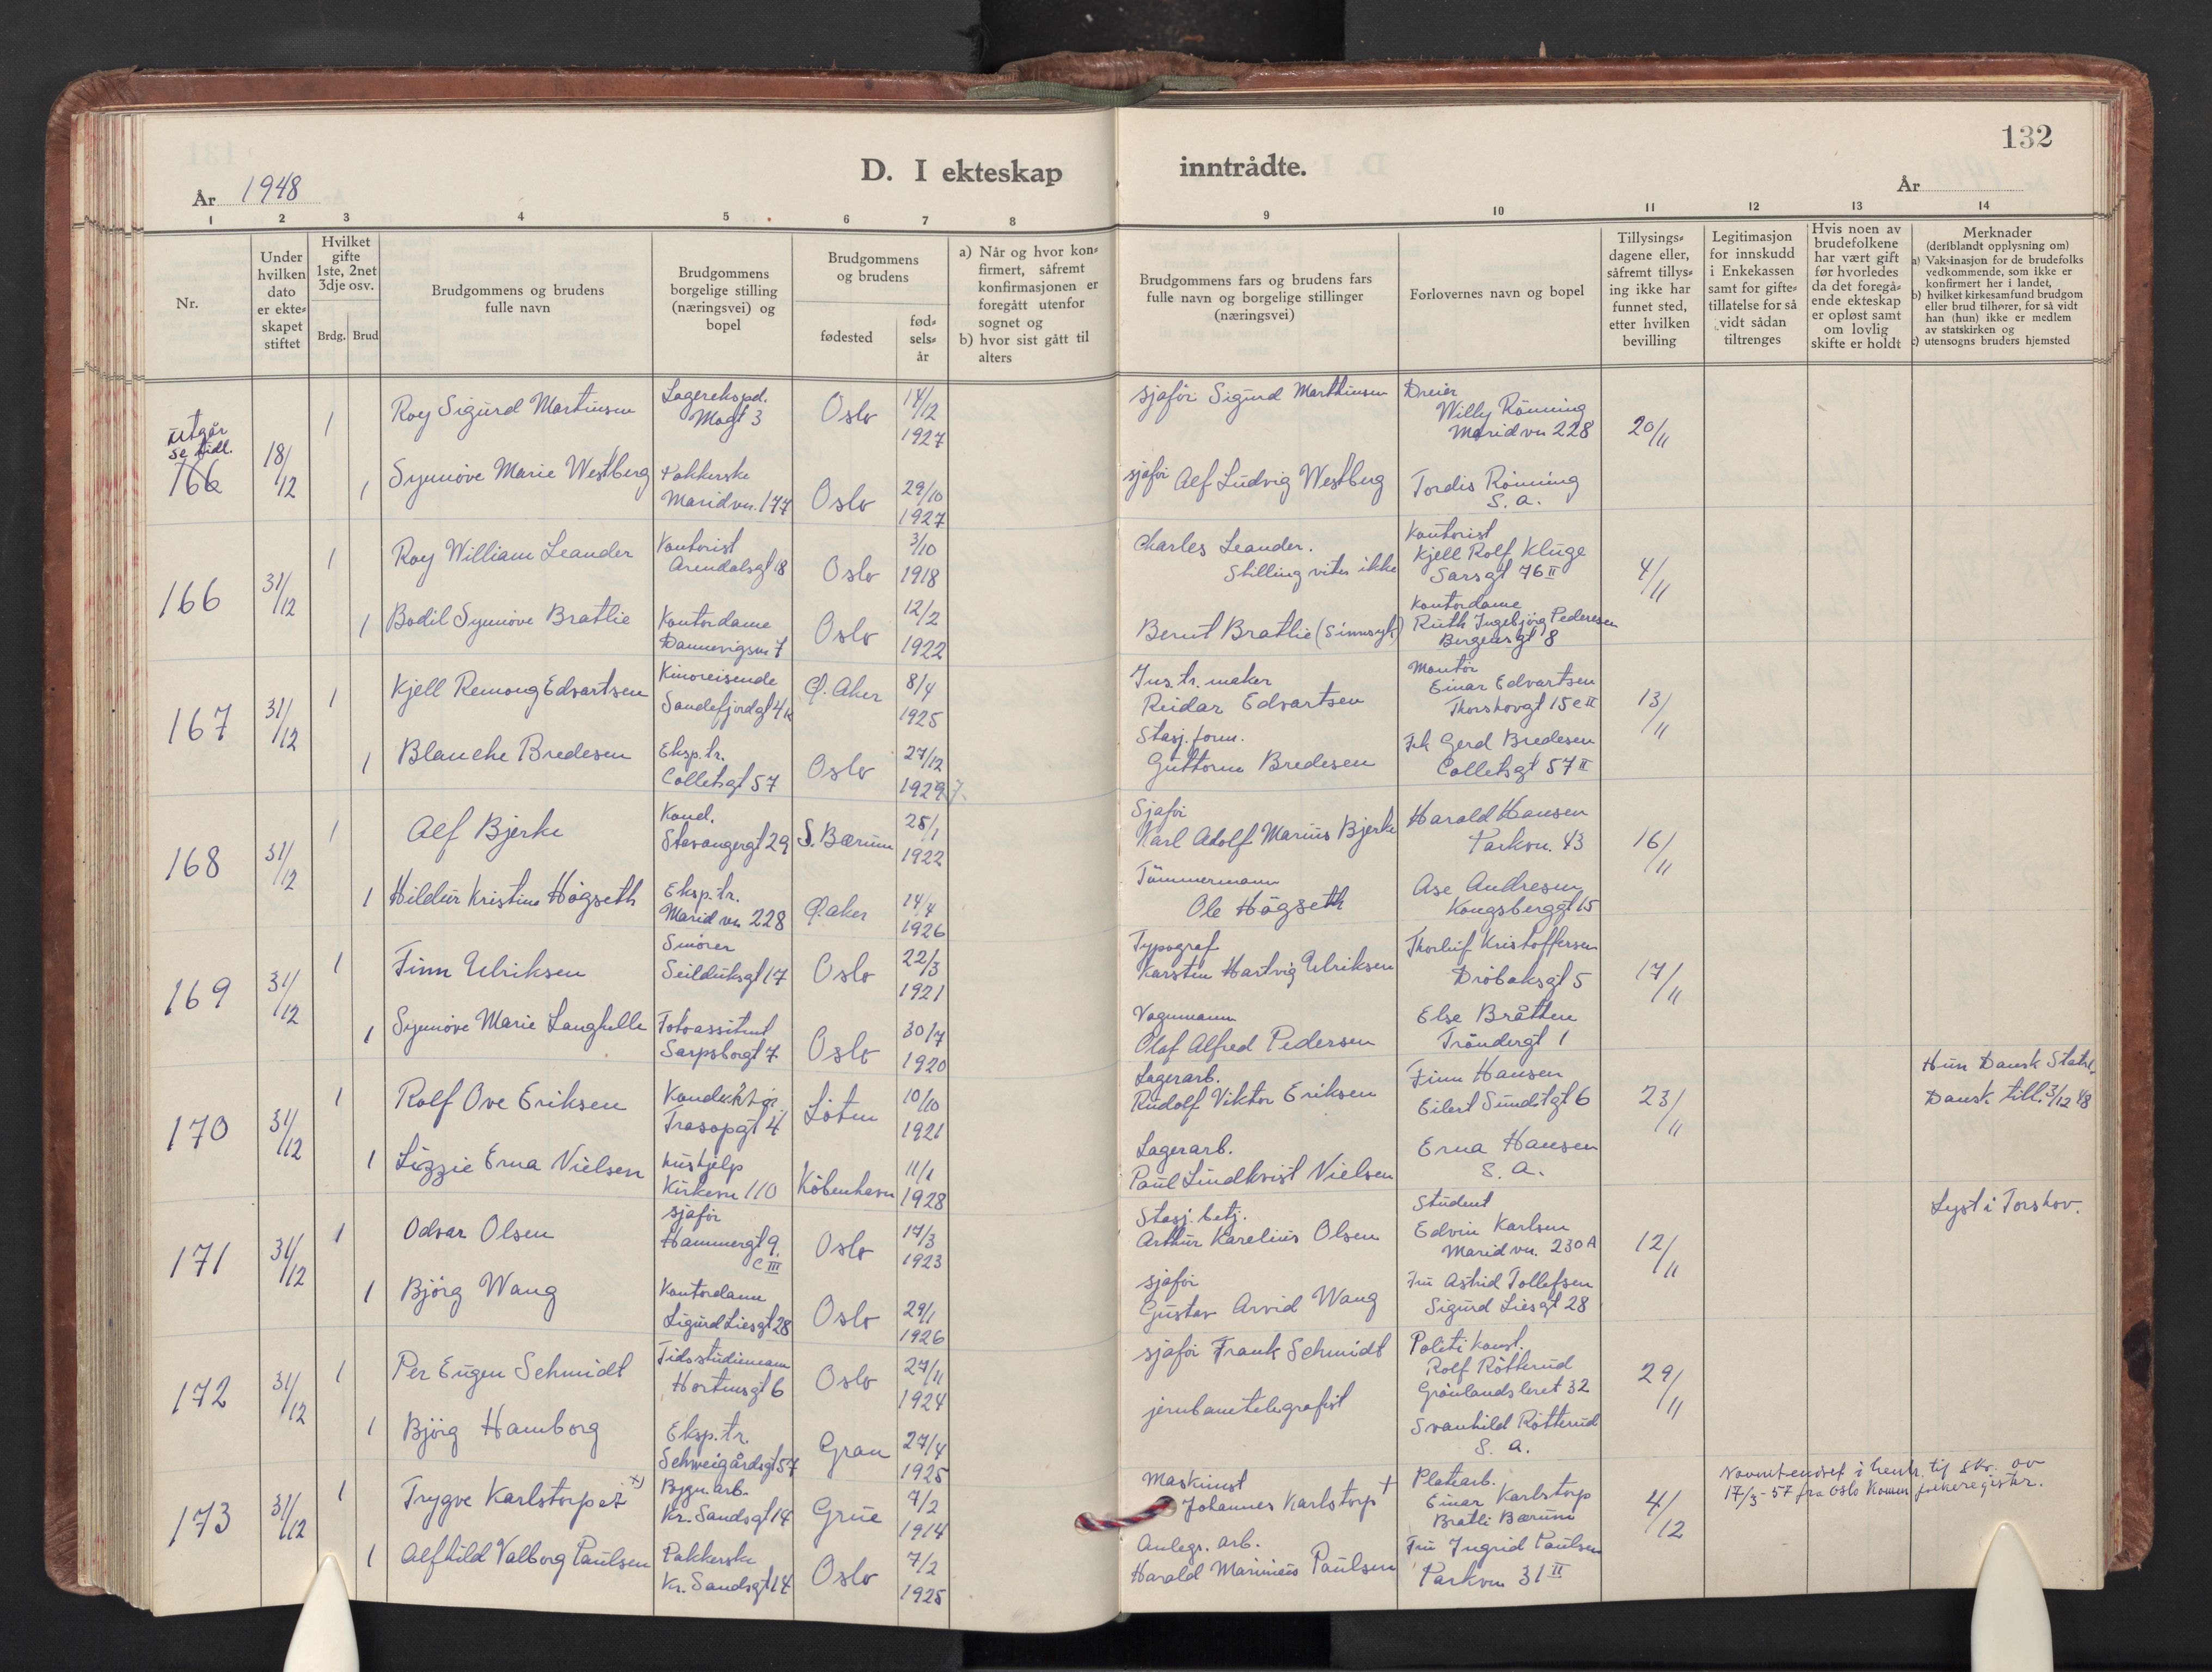 132
D. I ekteskap inntrådte.
År 1948
År
1 2 3 4 5 6 7 8 9 10 11 12 13 14
Nr.
Under hvilken dato er ekte-skapet stiftet
Hvilket gifte 1ste, 2net 3dje osv.
Brdg. Brud
Brudgommens og brudens fulle navn
Brudgommens borgelige stilling (næringsvei) og bopel
Brudgommens og brudens
fødested
fød-sels-år
a) Når og hvor kon-firmert, såfremt konfirmasjonen er foregått utenfor sognet og
b) hvor sist gått til alters
Brudgommens fars og brudens fars fulle navn og borgelige stillinger (næringsvei)
Forlovernes navn og bopel
Tillysings-dagene eller, såfremt tillys-ing ikke har funnet sted, etter hvilken bevilling
Legitimasjon for innskudd i Enkekassen samt for gifte-tillatelse for så vidt sådan tiltrenges
Hvis noen av brudefolkene har vært gift før hvorledes da det foregå-ende ekteskap er opløst samt om lovlig skifte er holdt
Merknader
(deriblandt opplysning om)
a) Vaksinasjon for de brudefolks vedkommende, som ikke er konfirmert her i landet,
b) hvilket kirkesamfund brudgom eller brud tilhører, for så vidt han (hun) ikke er medlem av statskirken og
c) utensogns bruders hjemsted
Utgår se tidl.
166 18/12 1 Roy Sigurd Martinsen Lagerekspd. Mogt 3 Oslo 14/12 1927 sjafør Sigurd Marthinsen Dreier Willy Rönning Maridvn 228 20/11
1 Synnöve Marie Westberg Pakkerske Maridvn. 177 Oslo 29/10 1927 sjafør Alf Ludvig Westberg Tordis Rönning S. a.
166 31/12 1 Roy William Leander Kontorist Arendalsgt 18 Oslo 3/10 1918 Charles Leander. Stilling vites ikke Kontorist Kjell Rolf Kluge Sarsgt 76 II 4/11
1 Bodil Synnöve Bratlie Kontordame Dannevigsvn 7 Oslo 12/2 1922 Bernt Bratlie (Sinnsyk) Kontordame Ruth Ingebjörg Pedersen Bergensgt 8
167 31/12 1 Kjell Remong Edvartsen Kinoreisende Sandefjordgt 4 Ø. Aker 8/4 1925 Instr. maker Reidar Edvartsen Montör Einar Edvartsen Thorshovgt 15 c II 13/11
1 Blanche Bredesen Eksp.tr. Colletsgt 57 Oslo 27/12 1929 7. Stasj. form. Guttorm Bredesen Frk Gerd Bredesen Colletsgt 57 II
168 31/12 1 Alf Bjerke Kond. Stavangergt 29 S. Bærum 25/1 1922 Sjafør Karl Adolf Marius Bjerke Harald Hansen Parkvn. 43 16/11
1 Hildur Kristine Högseth Eksp.tr. Maridvn 228 Ø. aker 14/4 1926 Tömmermann Ole Högseth Ase Andresen Kongsberggt 15
169 31/12 1 Finn Ulriksen Smörer Seilduksgt 17 Oslo 22/3 1921 Typograf Karsten Hartvig Ulriksen Thorleif Kristoffersen Dröbaksgt 5 17/11
1 Synnöve Marie Langhelle Fotoassitent Sarpsborgt 7 Oslo 30/7 1920 Vognmann Olaf Alfred Pedersen Else Bråtten Tröndergt 1
170 31/12 1 Rolf Ove Eriksen Konduktör Frasopgt 4 Löten 10/10 1921 Lagerarb. Rudolf Viktor Eriksen Finn Hansen Eilert Sundtgt 6 23/11 Hun Dansk Statsb. Dansk till. 3/12 48
1 Lizzie Erna Nielsen hushjelp Kirkevn 110 Köbenhavn 11/1 1928 Lagerarb. Paul Lindkvist Nielsen Erna Hansen S. a.
171 31/12 1 Odvar Olsen sjafør Hammergt 9. C III Oslo 17/3 1923 Stasj. betj. Arthur Karelius Olsen Student Edvin Karlsen Maridvn. 230 A 12/11 Lyst i Torshov.
1 Björg Wang Kontordame Sigurd Liesgt 28 Oslo 29/1 1926 sjafør Gustav Arvid Wang Fru Astrid Tollefsen Sigurd Liesgt 28
172 31/12 1 Per Eugen Schmidt Tidsstudiemann Hortensgt 6 Oslo 27/11 1924 sjafør Frank Schmidt Politikonst. Rolf Rötterud Grönlandsleret 32 29/11
1 Björg Hamborg Eksp.tr. Schweigårdsgt 57 Gran 27/4 1925 jernbanetelegrafist Svanhild Rötterud S. a.
173 31/12 1 Trygve Karlstorpet x) Bygn.arb. Kr. Sandsgt 14 Grue 7/2 1914 Maskinist Johannes Karlstorp + Platearb. Einar Karlstorp Bratli Bærum 4/12 Navnet endret i henh. til skr. av 17/3-57 fra Oslo Komm. folkeregister.
1 Alfhild Valborg Paulsen Pakkerske Kr. Sandsgt 14 Oslo 7/2 1925 Anlegs. arb. Harald Marinius Paulsen Fru Ingrid Paulsen Parkvn 31 II